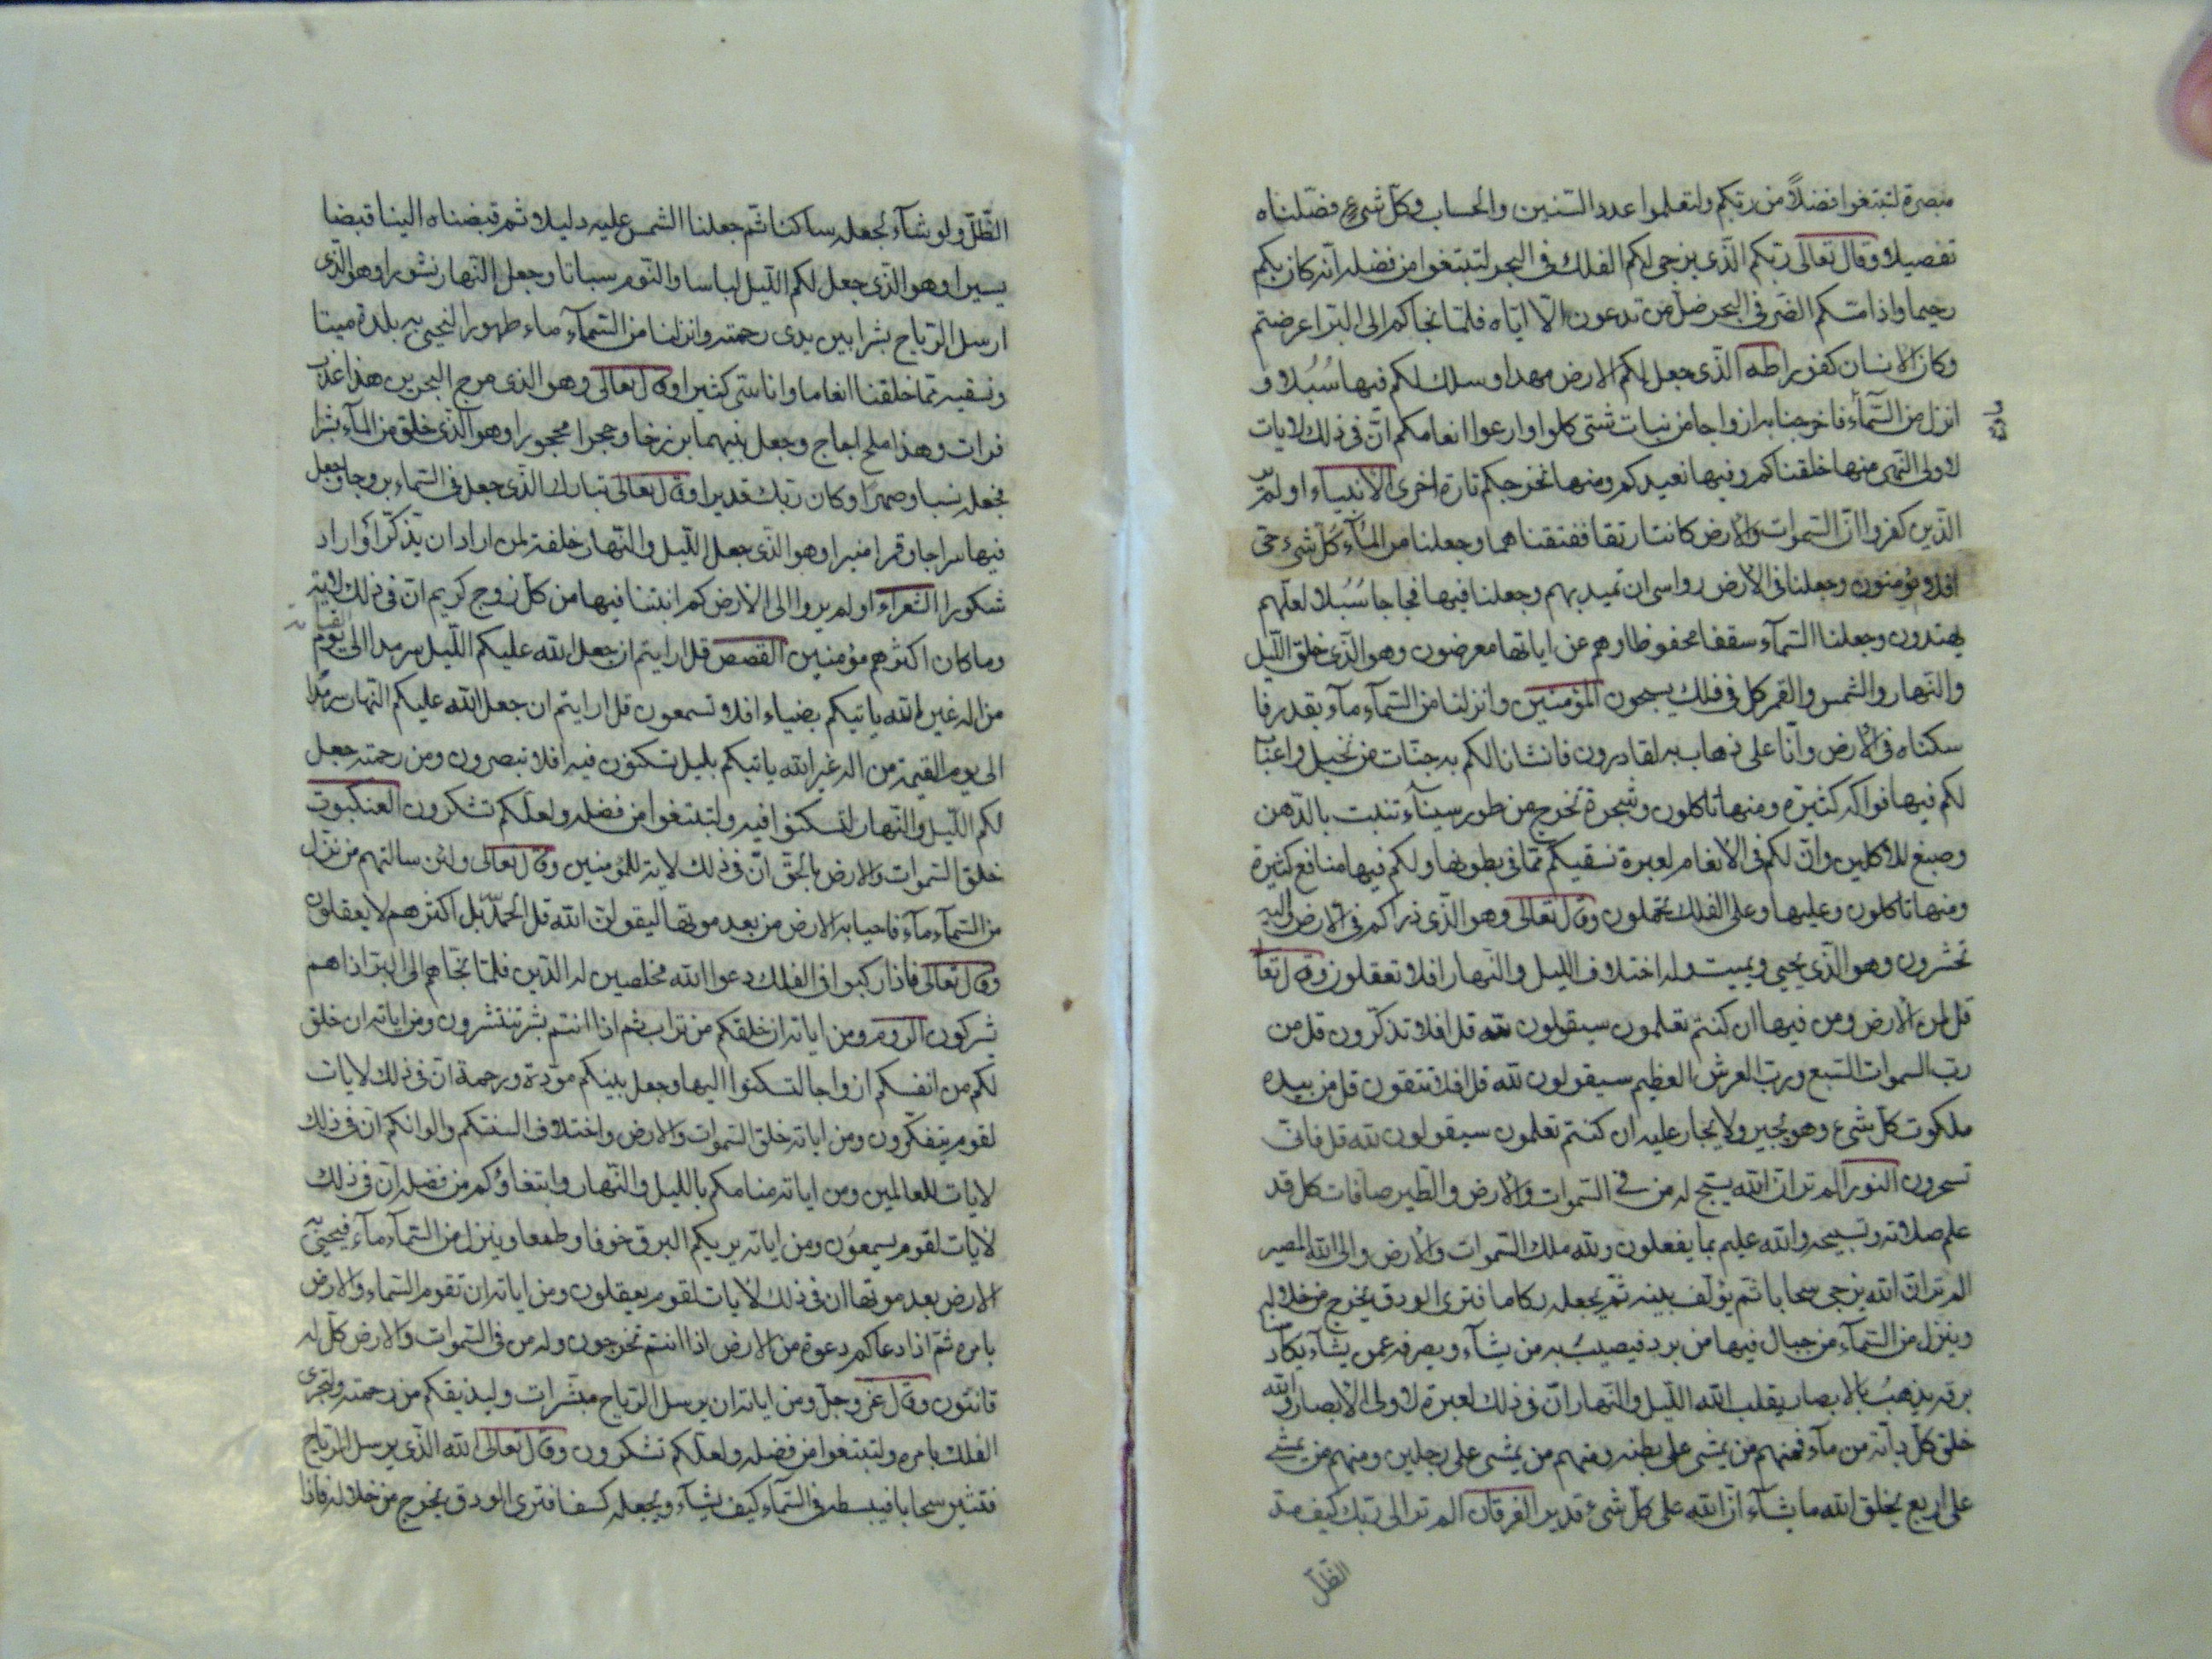 مبصرة لتبتغوا فضلاً من ربّكم ولتعلموا عدد السّنين والحساب وكلّ شيء فصّلناه
تفصيلا وقال تعالى ربّكم الّذى يزجى لكم الفلك فى البحر لتبتغوا من فضله انّه كان بكم
رحيما واذا مسّكم الضّر فى البحر ضلّ من تدعون الّا ايّاه فلمّا نجاكم الى البرّ اعرضتم
وكان الانسان كفورا طه الّذى جعل لكم الارض مهدا وسلك لكم فيها سُبُلا و
انزل من السّمآء فاخرجنا به ازواجا من نبات شتى كلوا وارعوا انعامكم انّ فى ذلك لايات
ماء
لاولى النّهى منها خلقناكم وفيها نعيدكم ومنها نخرجكم تارة اخرى الانبياء اولم ير
الّذين كفروا انّ السّموات والارض كانتا رتقا ففتقناهما وجعلنا من المآء كُلّ شىء حى
افلا يؤمنون وجعلنا فى الارض رواسى ان تميد بهم وجعلنا فيها فجاجا سُبُلا لعلّهم
يهتدون وجعلنا السّمآء سقفا محفوظا وهم عن اياتها معرضون وهو الّذى خلق اللّيل
والنّهار والشّمس والقمر كل فى فلك يسبحون المؤمنين وانزلنا من السّمآء مآء بقدر فا
سكناه فى الارض وانّا على ذهاب به لقادرون فانشانا لكم به جنّات من نخيل واعناب
لكم فيها فواكه كثيرة ومنها تاكلون وشجرة تخرج من طور سينآء تنبت بالدّهن
وصبغ للآكلين وانّ لكم فى الانعام لعبرة نسقيكم ممّا فى بطونها ولكم فيها منافع كثيرة
ومنها تاكلون وعليها وعلى الفلك تحملون وقال تعالى وهو الّذى ذراكم فى الارض واليه
تحشرون وهو الّذى يحيى ويميت وله اختلاف الليل والنّهار افلا تعقلون وقال تعا
قل لمن الارض ومن فيها ان كنتم تعلمون سيقولون لله قل افلا تذكّرون قل من
ربّ السموات السّبع وربّ العرش العظيم سيقولون لله قل افلا تتقون قل من بيده
ملكوت كلّ شىء وهو يُجير ولا يجار عليه ان كنتم تعلمون سيقولون لله قل فانّى
تسحرون النور الم تر انّ الله يسبّح له من فى السّموات والارض والطّير صافات كل قد
علم صلاته وتسبيحه والله عليم بما يفعلون ولله ملك السّموات والارض والى الله المصير
الم تر انّ الله يزجى سحابا ثمّ يؤلّف بينه ثمّ يجعله ركاما فترى الودق يخرج من خلاله
وينزل من السّمآء من جبال فيها من برد فيصيبُ به من يشآء ويصرفه عمن يشآء يكاد سنا
برقه يذهبُ بالابصار يقلب الله اللّيل والنّهار انّ فى ذلك لعبرة لاولى الابصار والله
خلق كلّ دابّة من مآء فمنهم من يمشى على بطنه ومنهم من يمشى على رجلين ومنهم من يمشى
على اربع يخلق الله ما يشآء انّ الله على كلّ شىء قدير الفرقان الم تر الى ربّك كيف مدّ
الظّلّ
الظّلّ ولو شآء لجعله ساكنا ثمّ جعلنا الشّمس عليه دليلا ثم قبضناه الينا قبضا
يسيرا وهو الّذى جعل لكم اللّيل لباسا والنّوم سباتا وجعل النّهار نشورا وهو الّذى
ارسل الرّياح بشرا بين يدى رحمته وانزلنا من السّمآء ماء طهورا لنحيى به بلدة ميتا
ونسقيه ممّا خلقنا انعاما واناسىّ كثيرا وقال تعالى وهو الذى مرج البحرين هذا عذب
فرات وهذا ملح اجاج وجعل بينهما برزخا وحجرا محجورا وهو الّذى خلق من المآء بشرا
فجعله نسبا وصهرا وكان ربّك قديرا وقال تعالى تبارك الّذى جعل فى السّماء بروجا وجعل
فيها سراجا وقمرا منيرا وهو الّذى جعل اللّيل والنّهار خلفة لمن اراد ان يذّكّر او اراد
شكورا الشعراء اولم يروا الى الارض كم انبتنا فيها من كلّ زوج كريم انّ فى ذلك لاية
وما كان اكثرهم مؤمنين القصص قل ارايتم ان جعل الله عليكم اللّيل سرمدا الى يوم القيمة
من اله غير الله ياتيكم بضياء افلا تسمعون قل ارايتم ان جعل الله عليكم النّهار سرمدا
الى يوم القيمة من اله غير الله ياتيكم بليل تسكنون فيه افلا تبصرون ومن رحمته جعل
لكم اللّيل والنّهار لتسكنوا فيه ولتبتغوا من فضله ولعلّكم تشكرون العنكبوت
خلق السّموات والارض بالحقّ انّ فى ذلك لاية للمؤمنين وقال تعالى ولئن سالتهم من نزّل
من السّمآء مآء فاحيا به الارض من بعد موتها ليقولنّ الله قل الحمد لله بل اكثرهم لا يعقلون
وقال تعالى فاذا ركبوا فى الفلك دعوا الله مخلصين له الدّين فلمّا نجّاهم الى البرّ اذا هم
يشركون الرّوم ومن اياته ان خلقكم من تراب ثم اذا انتم بشر تنتشرون ومن اياته ان خلق
لكم من انفسكم ازواجا لتسكنوا اليها وجعل بينكم مودّة ورحمة انّ فى ذلك لايات
لقوم يتفكّرون ومن اياته خلق السّموات والارض واختلاف السنتكم والوانكم انّ فى ذلك
لايات للعالمين ومن اياته منامكم بالليل والنّهار وابتغاؤكم من فضله انّ فى ذلك
لايات لقوم يسمعون ومن اياته يريكم البرق خوفا وطمعا وينزل من السّمآء مآء فيحيى به
الارض بعد موتها ان فى ذلك لايات لقوم يعقلون ومن اياته ان تقوم السّماء والارض
بامره ثمّ اذا دعاكم دعوة من الارض اذا انتم تخرجون وله من فى السّموات والارض كلّ له
قانتون وقال عزّ وجلّ ومن اياته ان يرسل الرّياح مبشّرات وليذيقكم من رحمته ولتجرى
الفلك بامره ولتبتغوا من فضله ولعلّكم تشكرون وقال تعالى الله الّذى يرسل الرّياح
فتثير سحابا فيبسطه فى السّمآء كيف يشآء ويجعله كسفا فترى الودق يخرج من خلاله فاذا